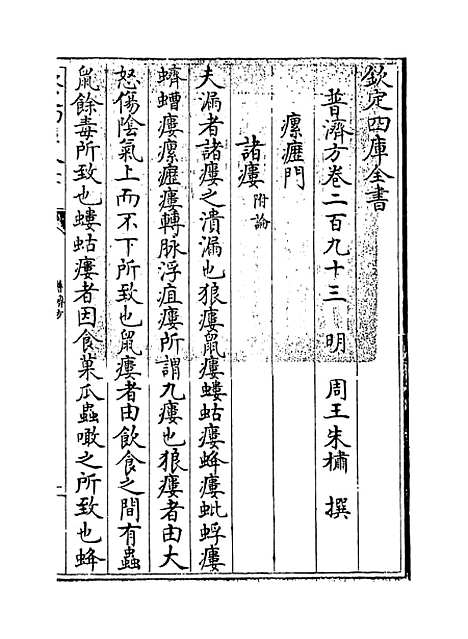 欽定四庫全書
普濟方卷二百九十三　明　周王朱橚　撰
瘰癧門
諸瘻附論
夫漏者諸瘻之潰漏也狼瘻鼠瘻螻蛄瘻蜂瘻蚍蜉瘻
蠐螬瘻瘰癧瘻轉脉浮疽瘻所謂九瘻也狼瘻者由大
怒傷陰氣上而不下所致也鼠瘻者由飲食之間有蟲
鼠餘毒所致也螻蛄瘻者因食菓瓜蟲噉之所致也蜂